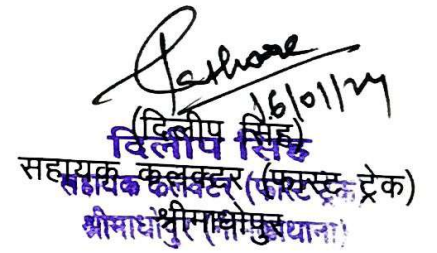 Rathore
16/01/24
(दिलीप सिंह)
दिलीप सिंह
सहायक कलक्टर (फास्ट ट्रेक)
सहायक कलक्टर (फास्ट ट्रेक)
श्रीमाधोपुर
श्रीमाधोपुर